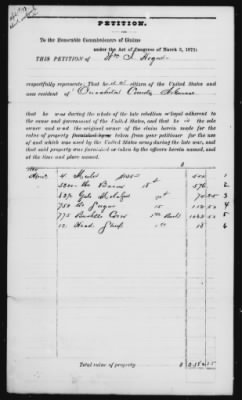 PETITION.
To the Honorable Commissioners of Claims
under the Act of Congress of March 3, 1871:
THIS PETITION of Wm J. Hogue
respectfully represents: That he is a citizen of the United States and
was resident of Ouachita County Arkansas
that he was during the whole of the late rebellion loyal adherent to
the cause and government of the United States, and that he is the sole
owner and was the original owner of the claims herein made for the
value of property taken from your petitioner for the use
of and which was used by the United States army during the late war, and
that said property was furnished or taken by the officers herein named, and
at the time and place named.
4 Mules 500 1
5200 lbs Bacon 576 2
127 Gals Molasses 70 25 3
750 lbs Sugar 15 112 50 4
775 Bushels Corn 50 5
12 Head Sheep 18 6
Total value of property $